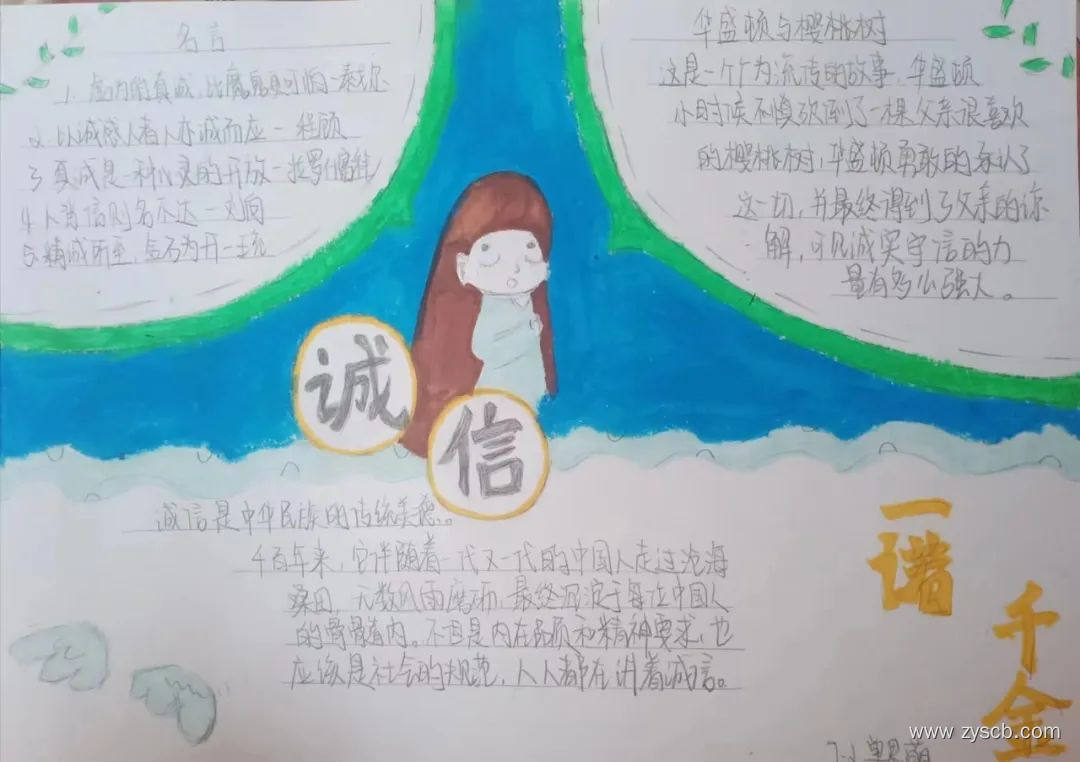 名言
1. 虚伪的真诚，比魔鬼更可怕一泰戈尔
2. 以诚感人者人亦诚而应一程颐
3 真诚是一种心灵的开放一拉罗什福科
4 人背信则名不达一刘向
5. 精诚所至，金石为开一王充
华盛顿与樱桃树
这是一个广为流传的故事，华盛顿
小时候不慎砍倒了一棵父亲很喜欢
的樱桃树，华盛顿勇敢的承认了
这一切，并最终得到了父亲的谅
解，可见诚实守信的力
量有多么强大。
诚
信
诚信是中华民族的传统美德。
千百年来，它伴随着一代又一代的中国人走过沧海
桑田，无数风雨磨砺，最终沉淀于每位中国人
的骨髓内。不但是内在品质和精神要求，也
应该是社会的规范，人人都在讲着诚信。
一
千
金
7-2
www.zyscb.com